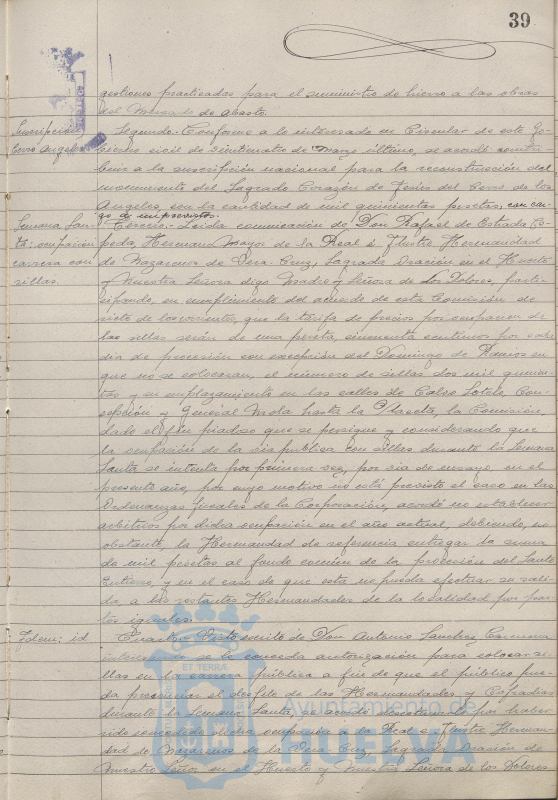 39
gestiones practicadas para el suministro de hierro a las obras
del Mercado de abasto.
Suscripción Cerro Angeles
Segundo.- Conforme a lo interesado en Circular de este Go-
bierno civil de veinticuatro de Marzo último, se acordó contri-
buir a la suscripción nacional para la reconstrucción del
monumento del Sagrado Corazón de Jesús del Cerro de los
Angeles, con la cantidad de mil quinientas pesetas, con car-
go de imprevistos.
Semana San-
ta: ocupación
carrera con
sillas.
Tercero.- Leida comunicación de Don Rafael de Estrada Ce-
peda, Hermano Mayor de la Real é Ilustre Hermandad
de Nazarenos de Vera-Cruz, Sagrada Oración en el Huerto
y Nuestra Señora digo Madre y Señora de los Dolores, parti-
cipando, en cumplimiento del acuerdo de esta Comisión de
siete de los corrientes, que la tarifa de precios por ocupación de
las sillas serán de una peseta, cincuenta centimos por cada
dia de procesión con excepción del Domingo de Ramos en
que no se colocaran, el número de sillas dos mil quinien-
tas y su emplazamiento en las calles de Calvo Sotelo, Con-
cepción y General Mola hasta la Placeta, la Comisión,
dado el fin piadoso que se persigue y considerando que
la ocupación de la via pública con sillas durante la Semana
Santa se intenta por primera vez, por via de ensayo, en el
presente año, por cuyo motivo no está previsto el caso en las
Ordenanzas fiscales de la Corporación, acordó no establecer
arbitrios por dicha ocupación en el año actual, debiendo, no
obstante, la Hermandad de referencia entregar la suma
de mil pesetas al fondo común de la procesión del Santo
Entierro, y en el caso de que esta no pueda efectuar su sali-
da, a las restantes Hermandades de la localidad por par-
tes iguales.
Idem: id
Cuarto.- Visto escrito de Don Antonio Sanchez Carmona
interesando se le conceda autorización para colocar si-
llas en la carrera pública a fin de que el público pue-
da presenciar el desfile de las Hermandades y Cofradias
durante la Semana Santa, se acordó desestimarlo por haber
sido concedida dicha ocupación a la Real e Ilustre Herman-
dad de Nazarenos de la Vera Cruz, Sagrada Oración de
Nuestro Señor en el Huerto y Nuestra Señora de los Dolores
ET TERRÆ
Ayuntamiento de
HUELVA